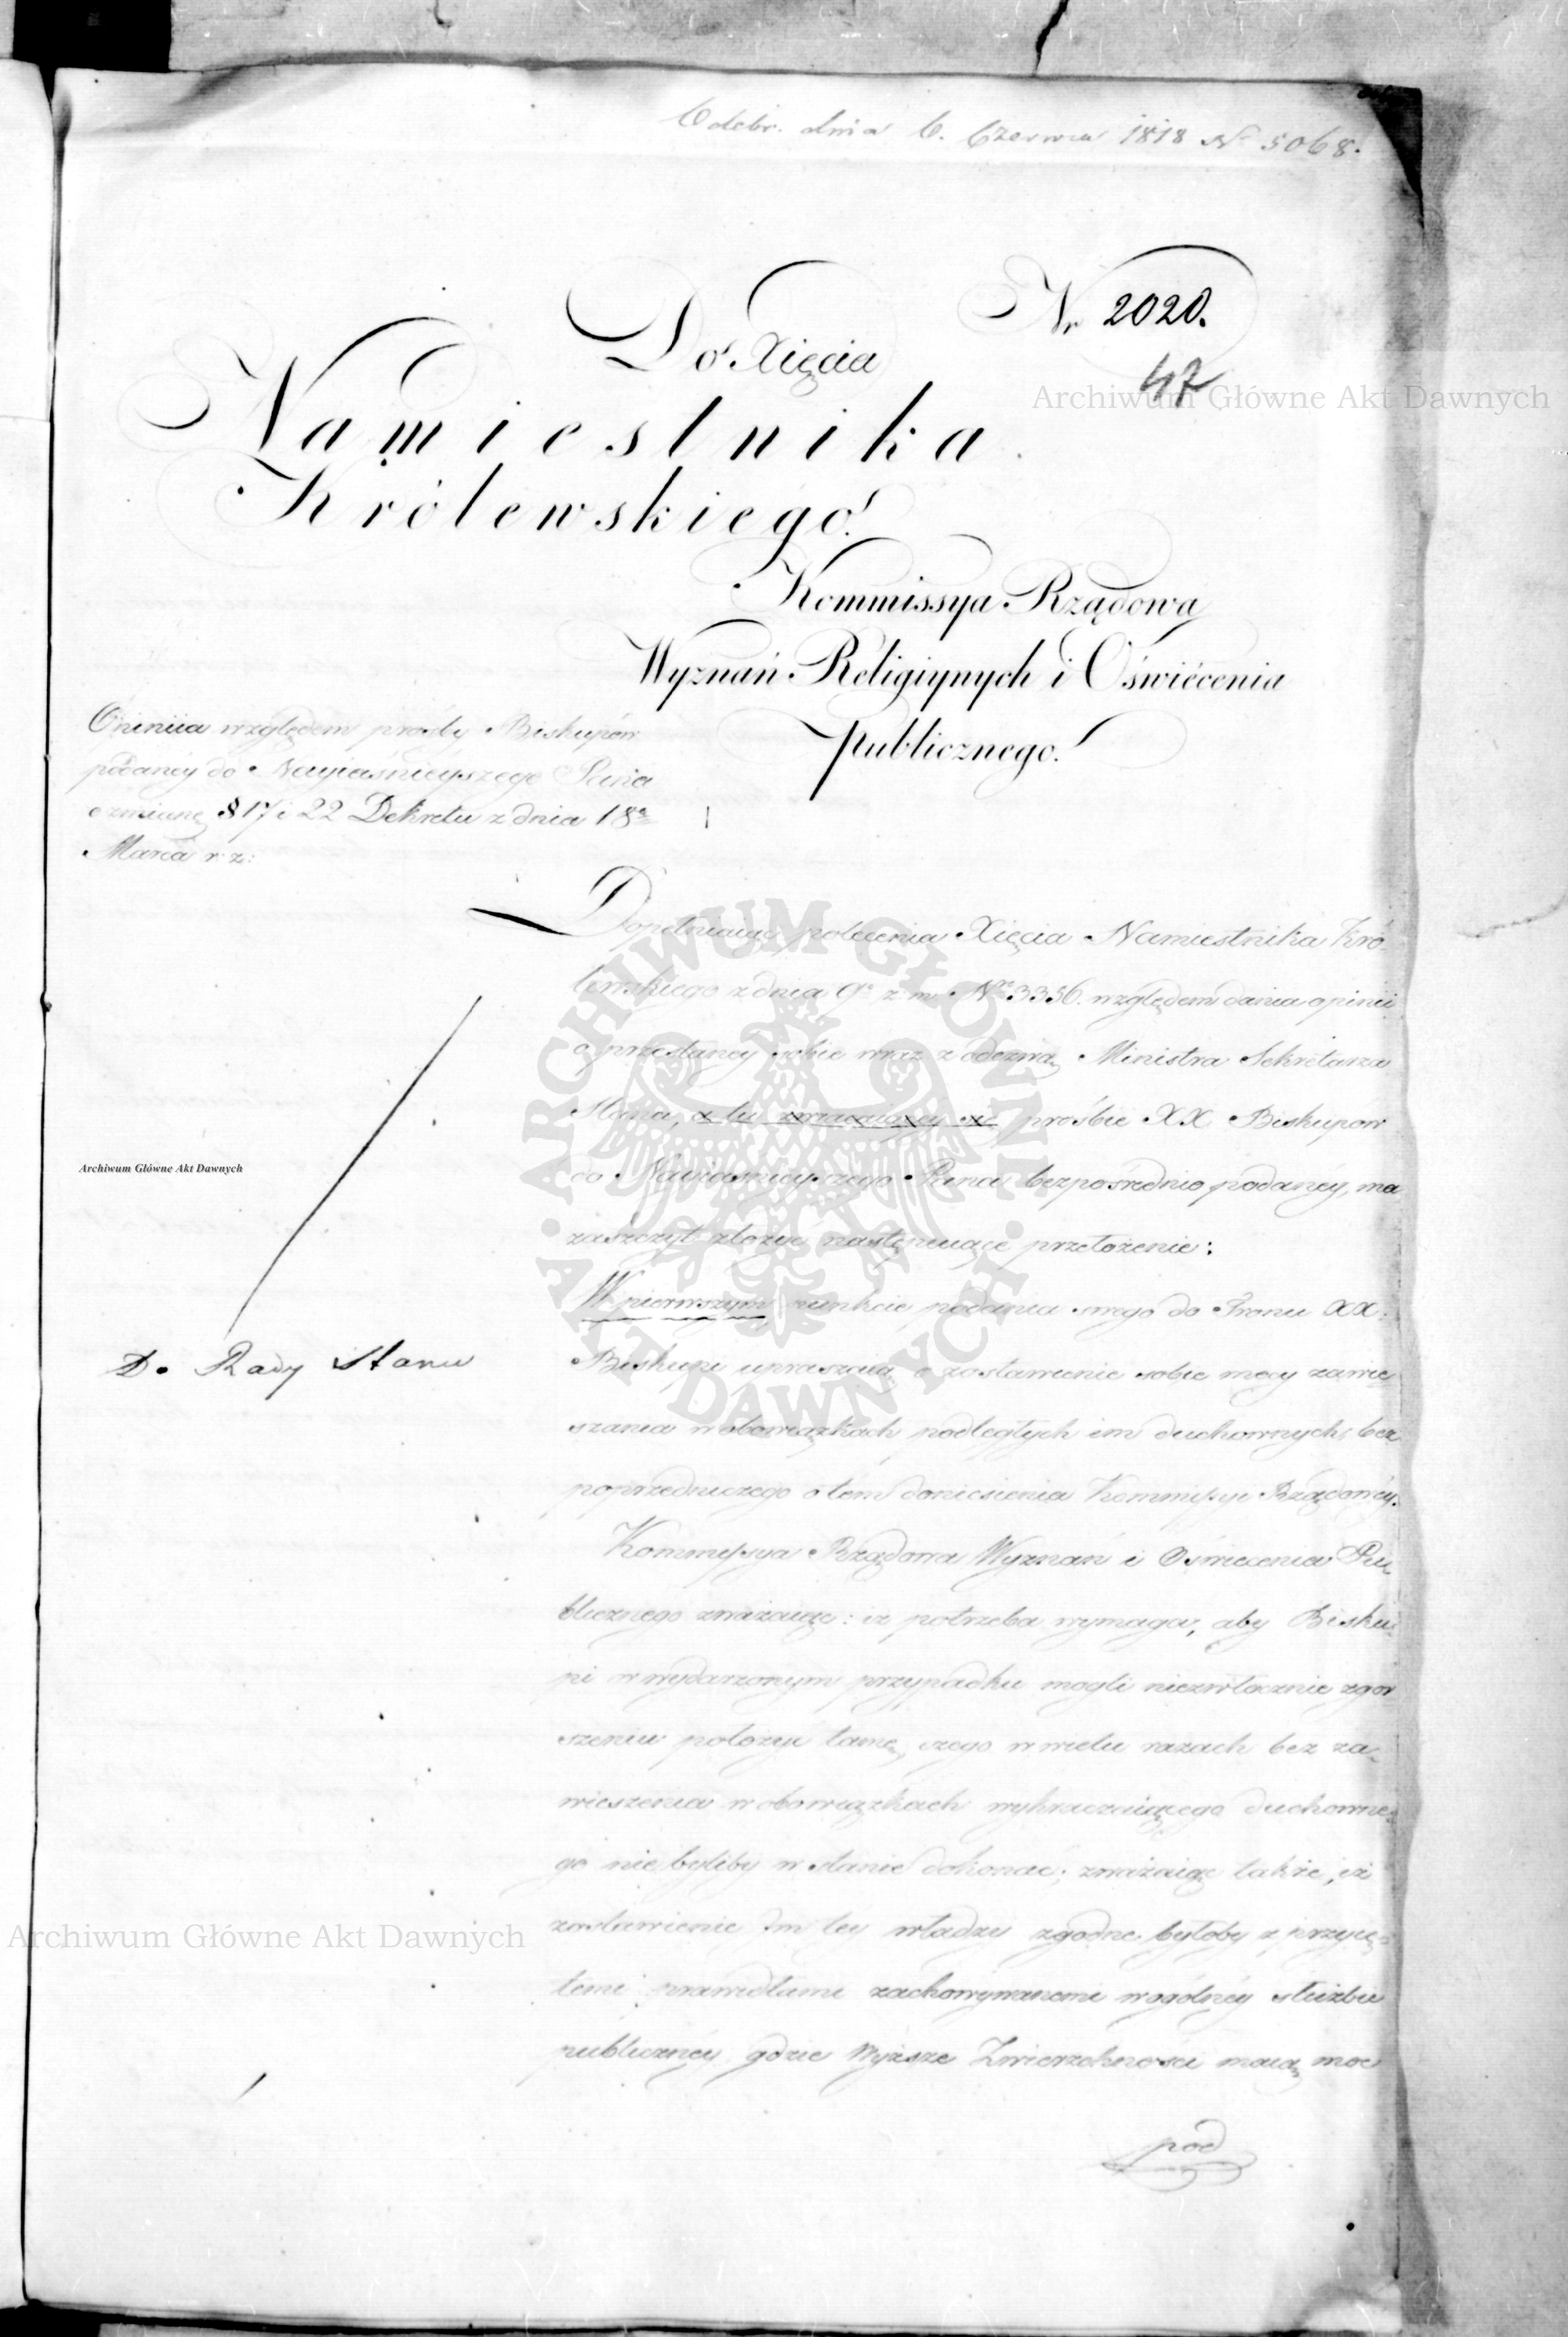 Odebr. dnia 6. Czerwca 1818 Nr 5068.
Nr 2020.
47
Do Xięcia
Namiestnika
Królewskiego.
Kommissya Rządowa
Wyznań Religiynych i Oświécenia
Publicznego.
Opiniia względem prośby Biskupów
podaney do Nayiaśnieyszego Pana
o zmianę § 17 i 22 Dekretu z dnia 18º
Marca r. z:
Dopełniaiąc polecenia Xięcia Namiestnika Kró-
lewskiego z dnia 9º z. m. Nro 3356. względem dania opinii
o przesłaney sobie wraz z odezwą Ministra Sekretarza
Stanu, a tu zwracaiącéy się prośbie XX. Biskupów
do Nayiaśnieyszego Pana bezpośrednio podanéy, ma
zaszczyt złożyć następuiące przełożenie:
W pierwszym punkcie podania swego do Tronu XX:
Biskupi upraszaią o zostawienie sobie mocy zawie-
szania w obowiązkach podległych im duchownych, bez
poprzedniczego o tém doniesienia Kommissyi Rządowéy.
Kommissya Rządowa Wyznań i Oświecenia Pu-
blicznego zważaiąc: iż potrzeba wymaga, aby Bisku-
pi w wydarzonym przypadku mogli niezwłocznie zgor-
szeniu położyć tamę, czego w wielu razach bez za-
wieszenia w obowiązkach wykraczaiącego duchowne-
go nie byliby w stanie dokonać; zważaiąc także, iż
zostawienie Im tey władzy zgodne byłoby z przyię-
temi prawidłami zachowywanemi w ogólnéy służbie
publicznéy, gdzie Wyższe Zwierzchności maią moc
pod
Do Rady Stanu
Archiwum Główne Akt Dawnych
Archiwum Główne Akt Dawnych
Archiwum Główne Akt Dawnych
· ARCHIWUM GŁÓWNE · AKT DAWNYCH